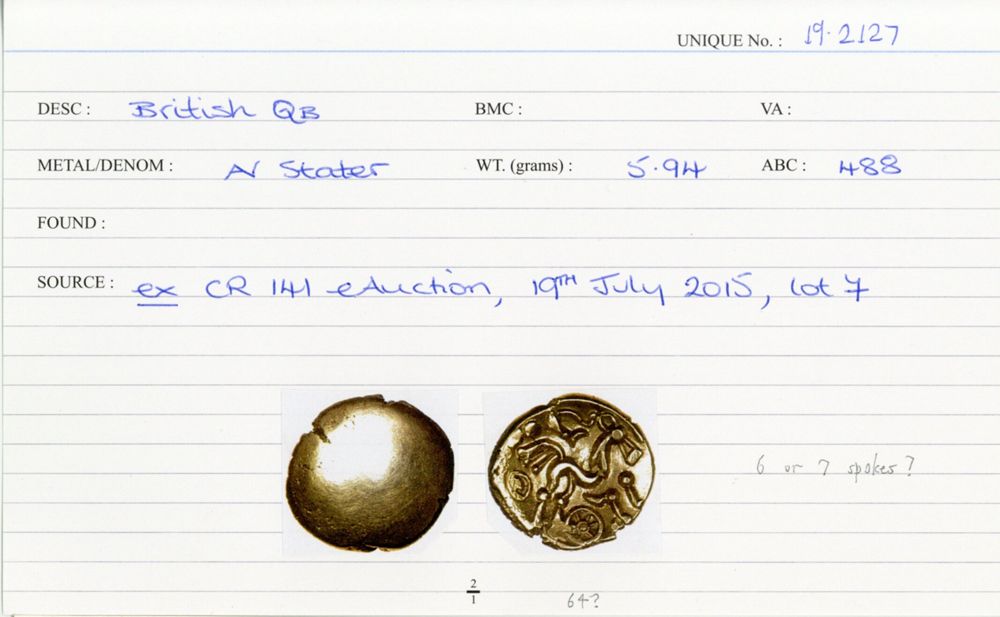 UNIQUE No. : 19.2127
DESC : British QB BMC : VA :
METAL/DENOM : AV Stater WT. (grams) : 5.94 ABC : 488
FOUND :
SOURCE : ex CR 141 eAuction, 19TH July 2015, lot 7
6 or 7 spokes?
2
1
64?